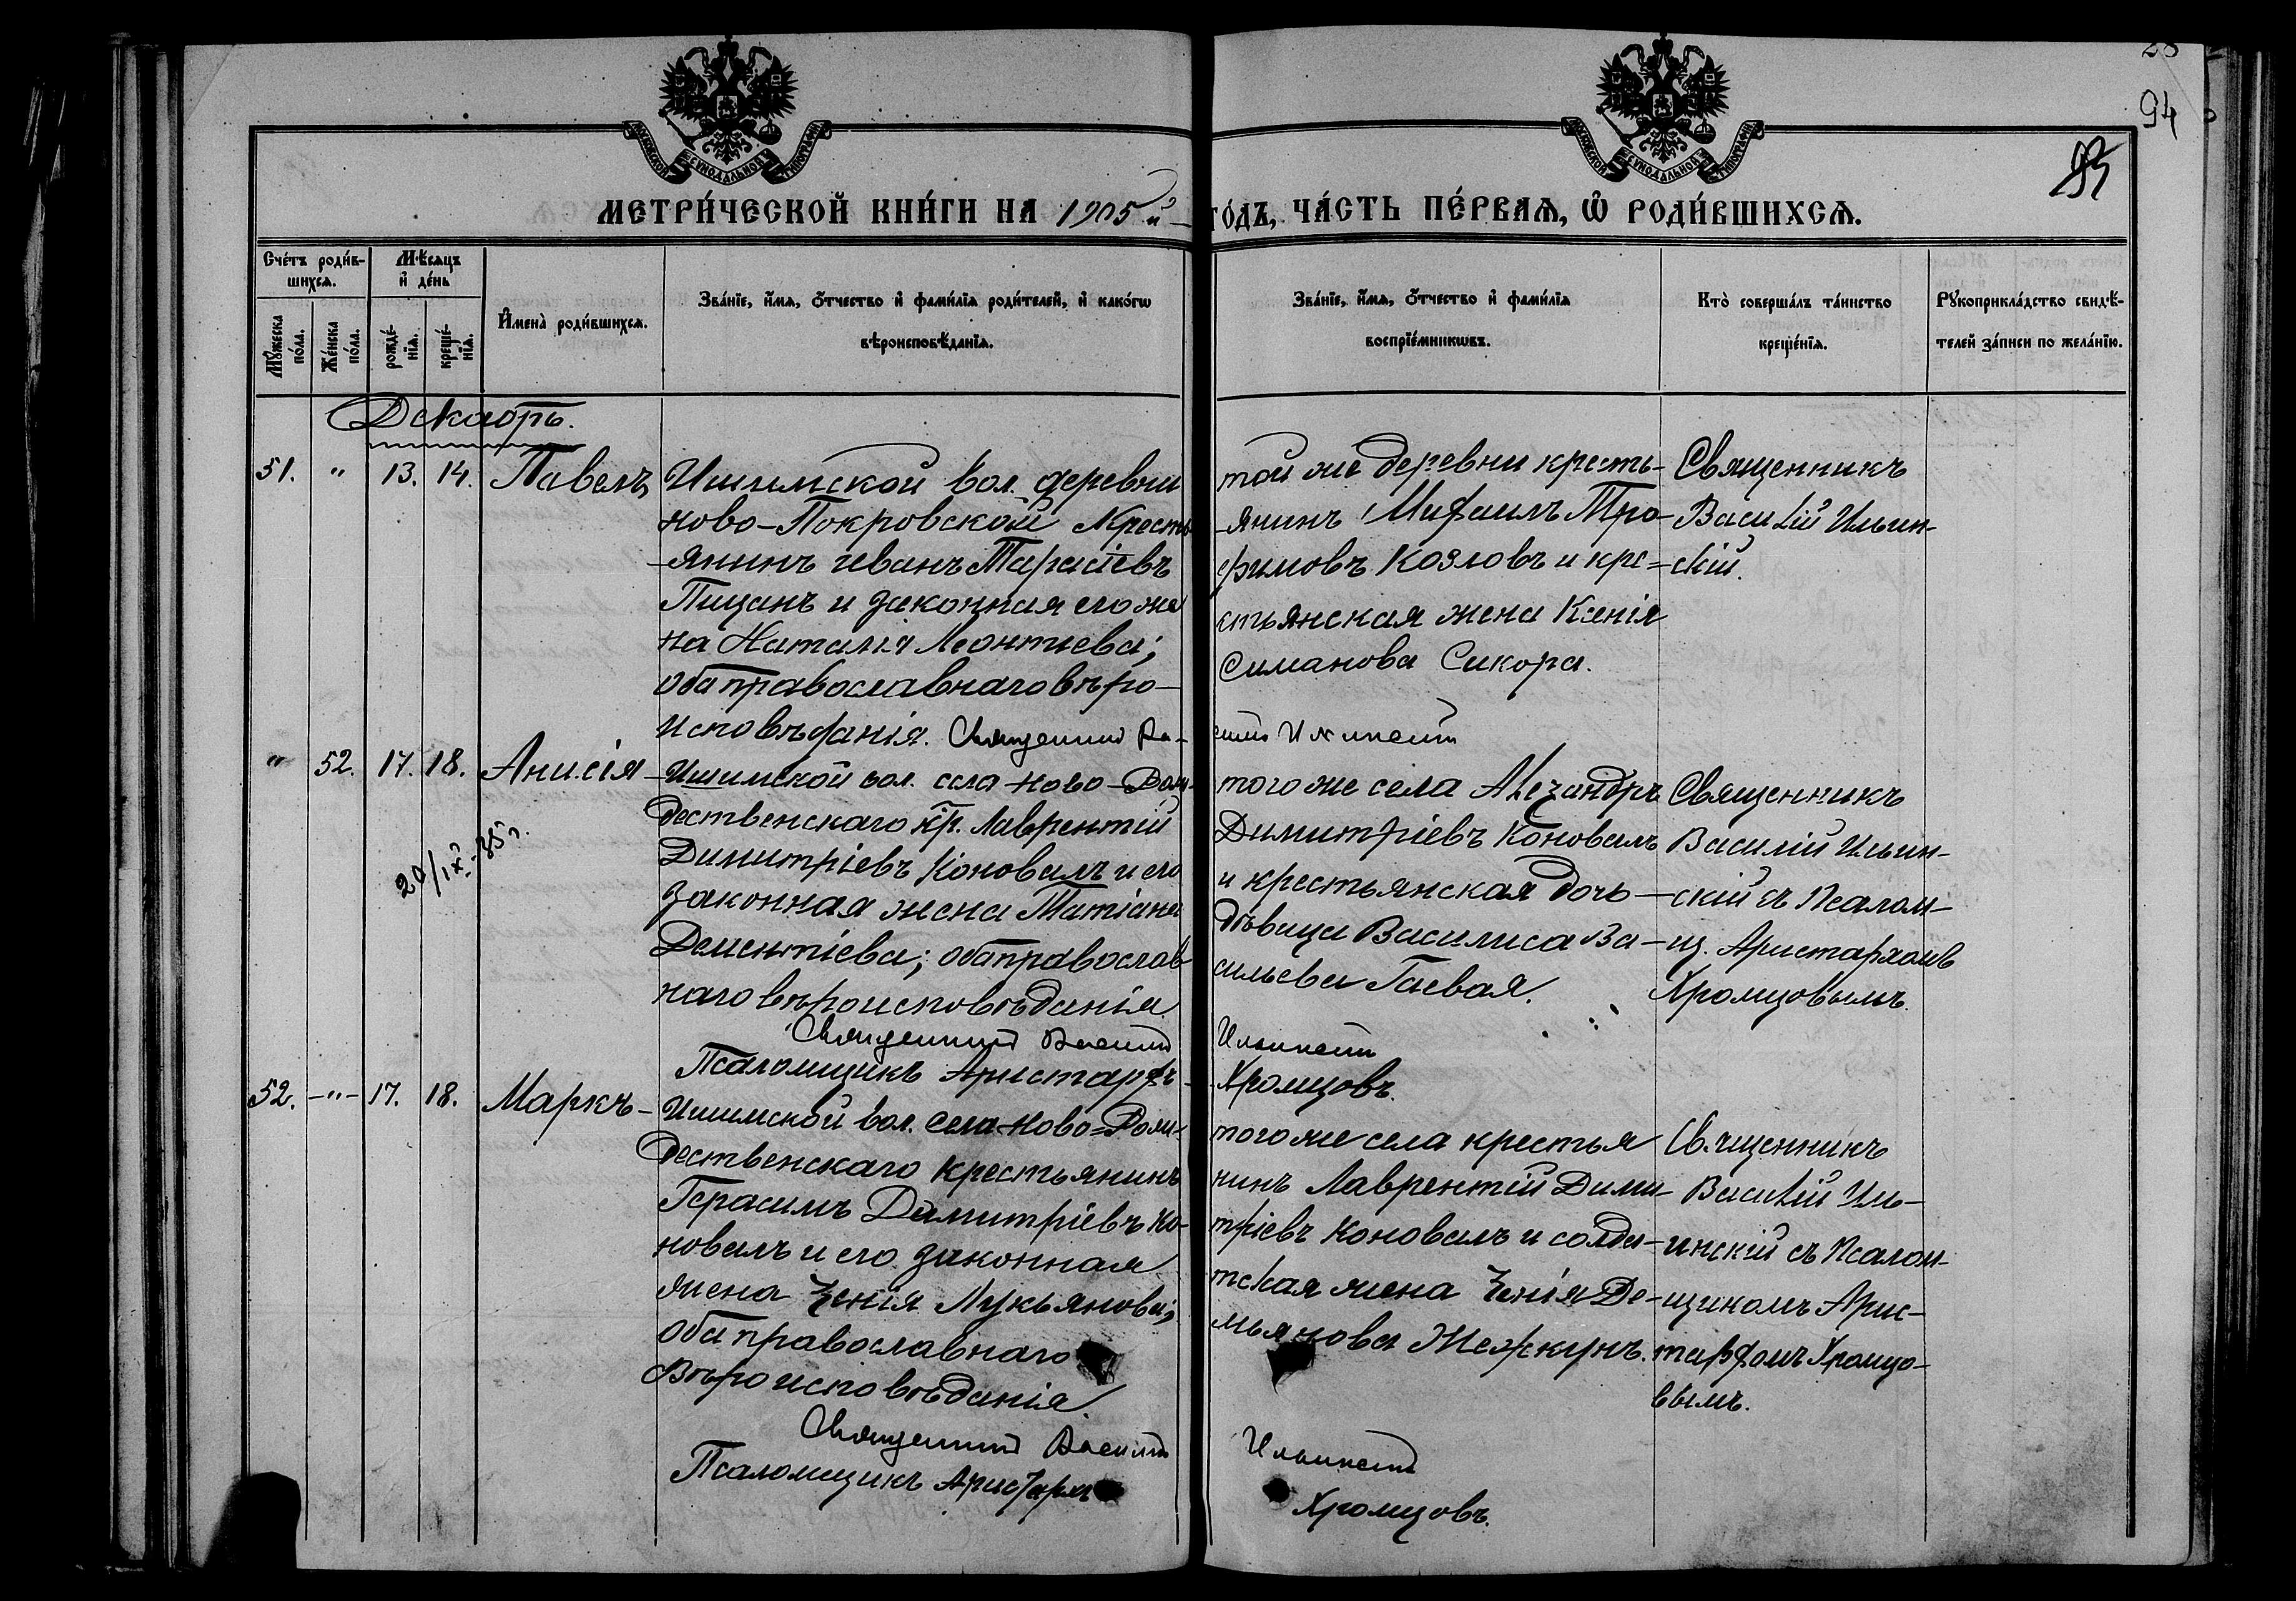 28
94
93
МОСКОВСКОЙ СѴНОДАЛЬНОЙ ТИПОГРАФІИ
МОСКОВСКОЙ СѴНОДАЛЬНОЙ ТИПОГРАФІИ
МЕТРИ́ЧЕСКОЙ КНИ́ГИ НА 1905й
ГО́ДЪ, ЧА́СТЬ ПЕ́РВАѦ, Ѡ҆ РОДИ́ВШИХСѦ.
Сче́тъ роди́в-
шихсѧ.
Мꙋ́жеска по́ла.
Же́нска по́ла.
Мѣ́сѧцъ
и҆ де́нь
рожде́-
нїѧ.
креще́-
нїѧ.
И҆мена̀ роди́вшихсѧ.
Зва́нїе, и҆́мѧ, ѻ҆́тчество и҆ фами́лїѧ роди́телей, и҆ како́гѡ
вѣроисповѣ́данїѧ.
Зва́нїе, и҆́мѧ, ѻ҆́тчество и҆ фами́лїѧ
воспрїе́мникѡвъ.
Кто̀ соверша́лъ та́инство
креще́нїѧ.
Рꙋкоприкла́дство свидѣ́-
телей за́писи по жела́нїю.
Декабрь.
51. " 13. 14. Павелъ
Ишимской вол. деревни
Ново-Покровской Кресть
-янинъ Иванъ Тарасіевъ
Пицанъ и законная его же
на Наталія Леонтиева;
оба православнаго вѣро-
исповѣданія. Священникъ Ва-
той же деревни кресть-
-янинъ Михаилъ Тро-
фимовъ Козловъ и кре-
стьянская жена Ксенія
Симанова Сикора.
силій Ильинскій
Священникъ
Василій Ильин-
скій.
" 52. 17. 18. Анисія
20/IX-35г.
Ишимской вол. села Ново-Рож-
дественскаго кр. Лаврентій
Димитріевъ Коновалъ и его
законная жена Татіана
Дементіева; оба православ
наго вѣроисповѣданія
Священникъ Василій
Псаломщикъ Аристархъ
того же села Александръ
Димитріевъ Коновалъ
и крестьянская дочь
дѣвица Василиса Ва-
сильева Гаевая.
Ильинскій
Хромцовъ.
Священникъ
Василій Ильин-
скій съ Псалом-
щ. Аристархомъ
Хромцовымъ.
52. -"- 17. 18. Маркъ-
Ишимской вол. села Ново-Рож-
дественскаго крестьянинъ
Герасимъ Димитріевъ Ко-
новалъ и его законная
жена Ксенія Лукьянова;
оба православнаго
вѣроисповѣданія.
Священникъ Василій
Псаломщикъ Аристархъ
того же села крестья
нинъ Лаврентій Дими-
тріевъ Коновалъ и солда-
тская жена Ксенія Де-
мьянова Межкунъ.
Ильинскій
Хромцовъ.
Священникъ
Василій Иль-
инскій съ Псалом-
щикомъ Арис-
тархомъ Хромцо-
вымъ.